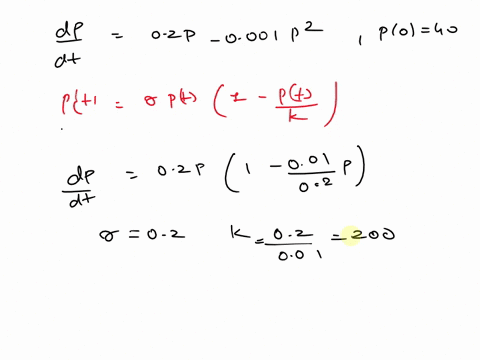 dp/dt = 0.2p - 0.001 p², p(0)=40
p(t) = σ p(t) (1 - p(t)/k)
dp/dt = 0.2p (1 - 0.01/0.2 p)
σ = 0.2 k = 0.2/0.01 = 200